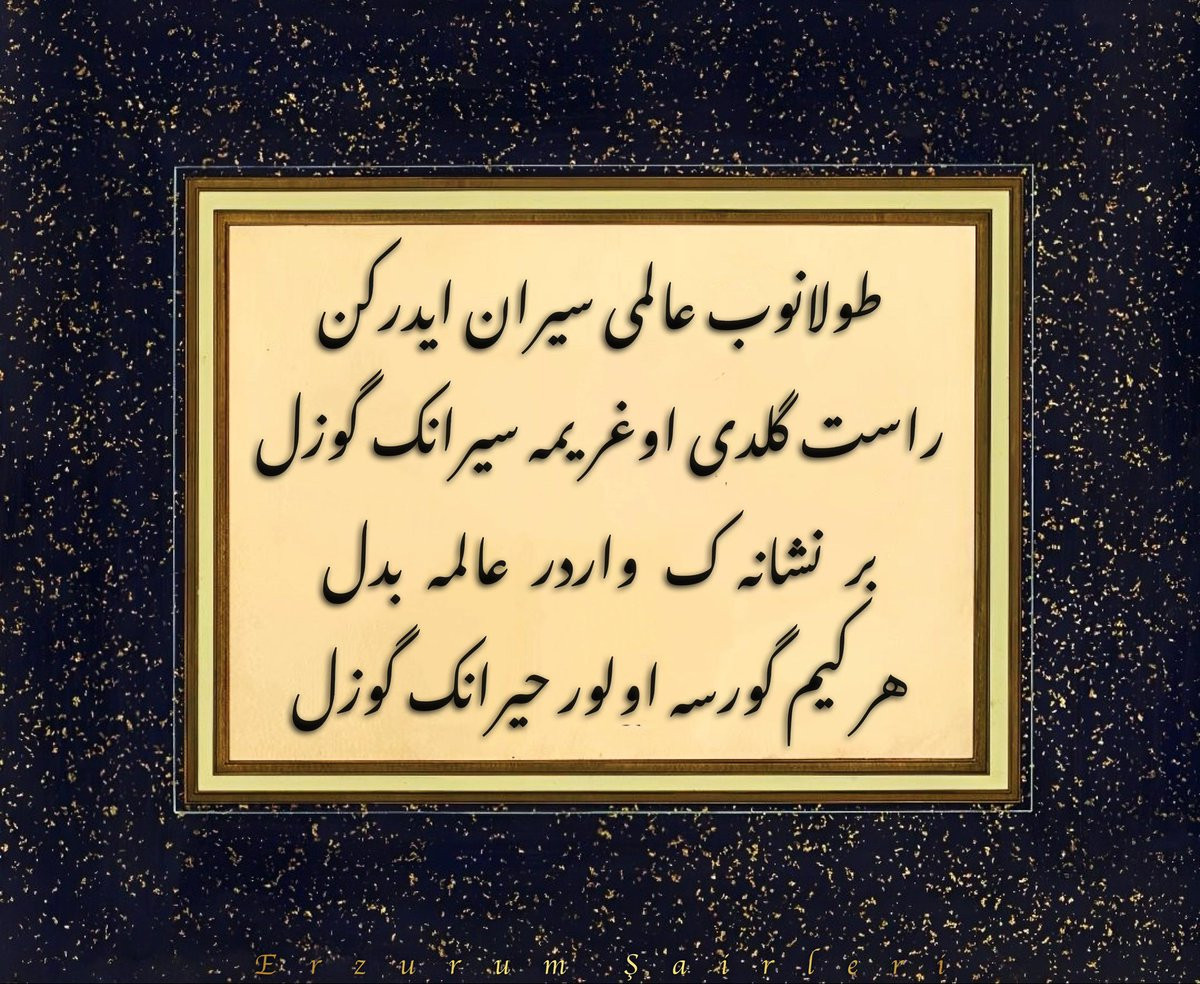 طولانوب عالمی سیران ایدرکن
راست گلدی اوغریمه سیرانک گوزل
بر نشانه ک واردر عالمه بدل
هر کیم گورسه اولور حیرانک گوزل
Erzurum Şairleri